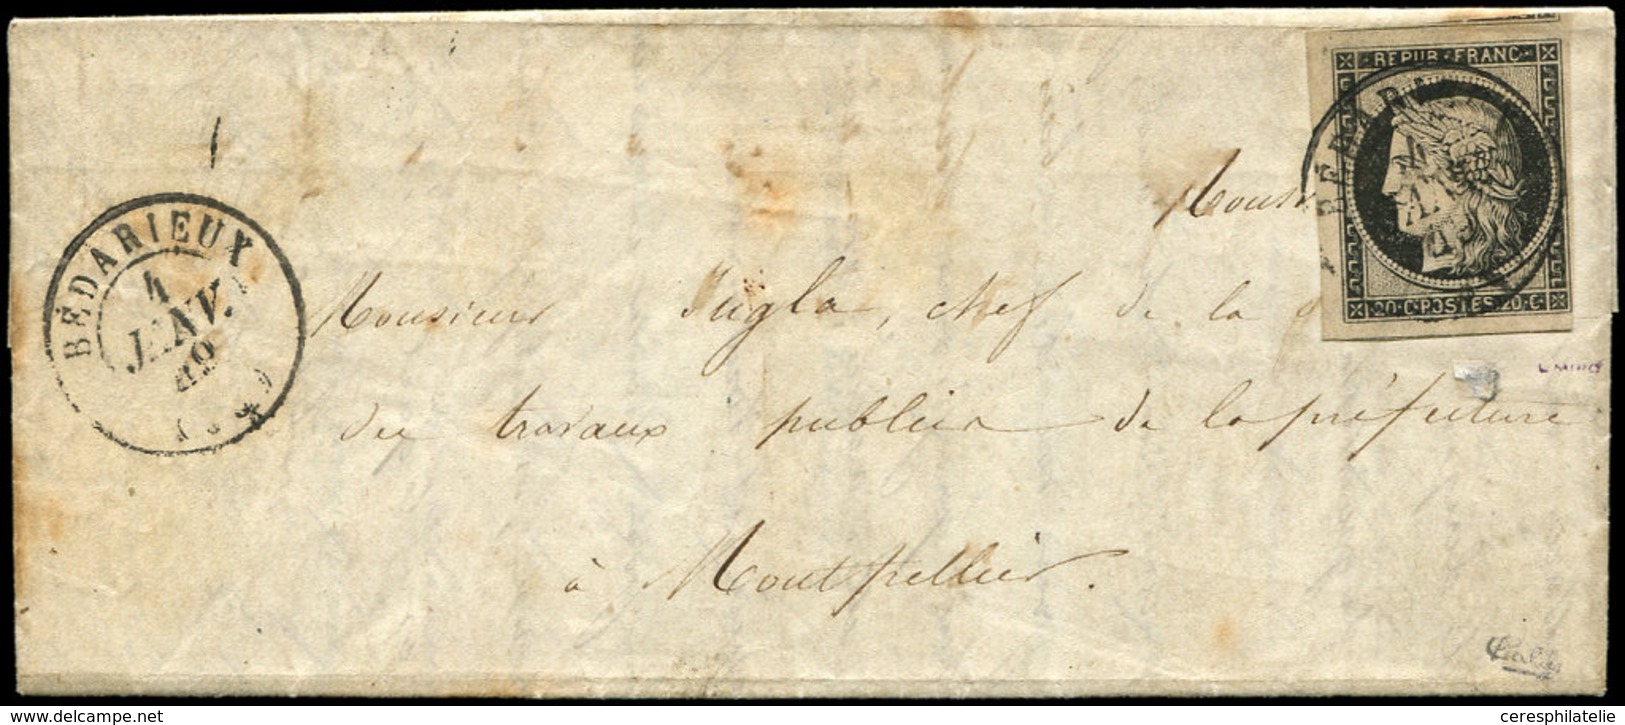 REPUB·FRANC
BÉDAR
4
JANV.
20·C·POSTES·20·C·
BÉDARIEUX
4
JANV.
49
Monsieur Jugla, chef de la
des travaux publics de la préfecture
à Montpellier.
www.delcampe.net
ceresphilatelie